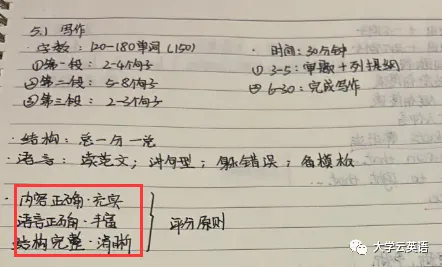 5.1 写作
·字数：120-180单词（150） · 时间：30分钟
①第一段：2-4个句子 ① 3-5：审题+列提纲
②第二段：5-8个句子 ② 6-30：完成写作
③第三段：2-3个句子
·结构：总一分一总
·语言：读范文；讲句型；错误；备模板
·内容正确·充实
语言正确·丰富 评分原则
结构完整·清晰
大学云英语